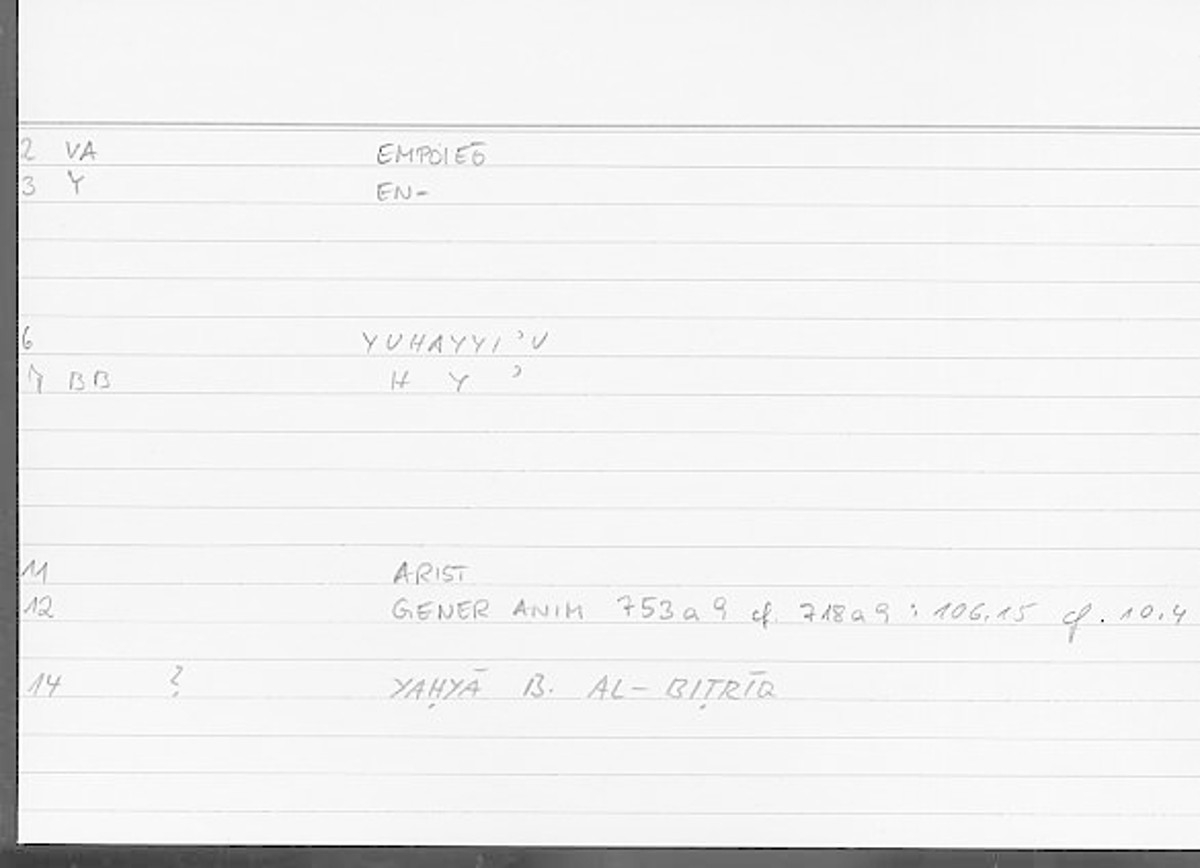 2 VA EMPOIEŌ
3 Y EN-
6 YUHAYYI ʾU
7 BB H Y ʾ
11 ARIST
12 GENER ANIM 753a9 cf. 718a9 : 106.15 cf. 10.4
14 ? YAḤYĀ B. AL-BIṬRĪQ